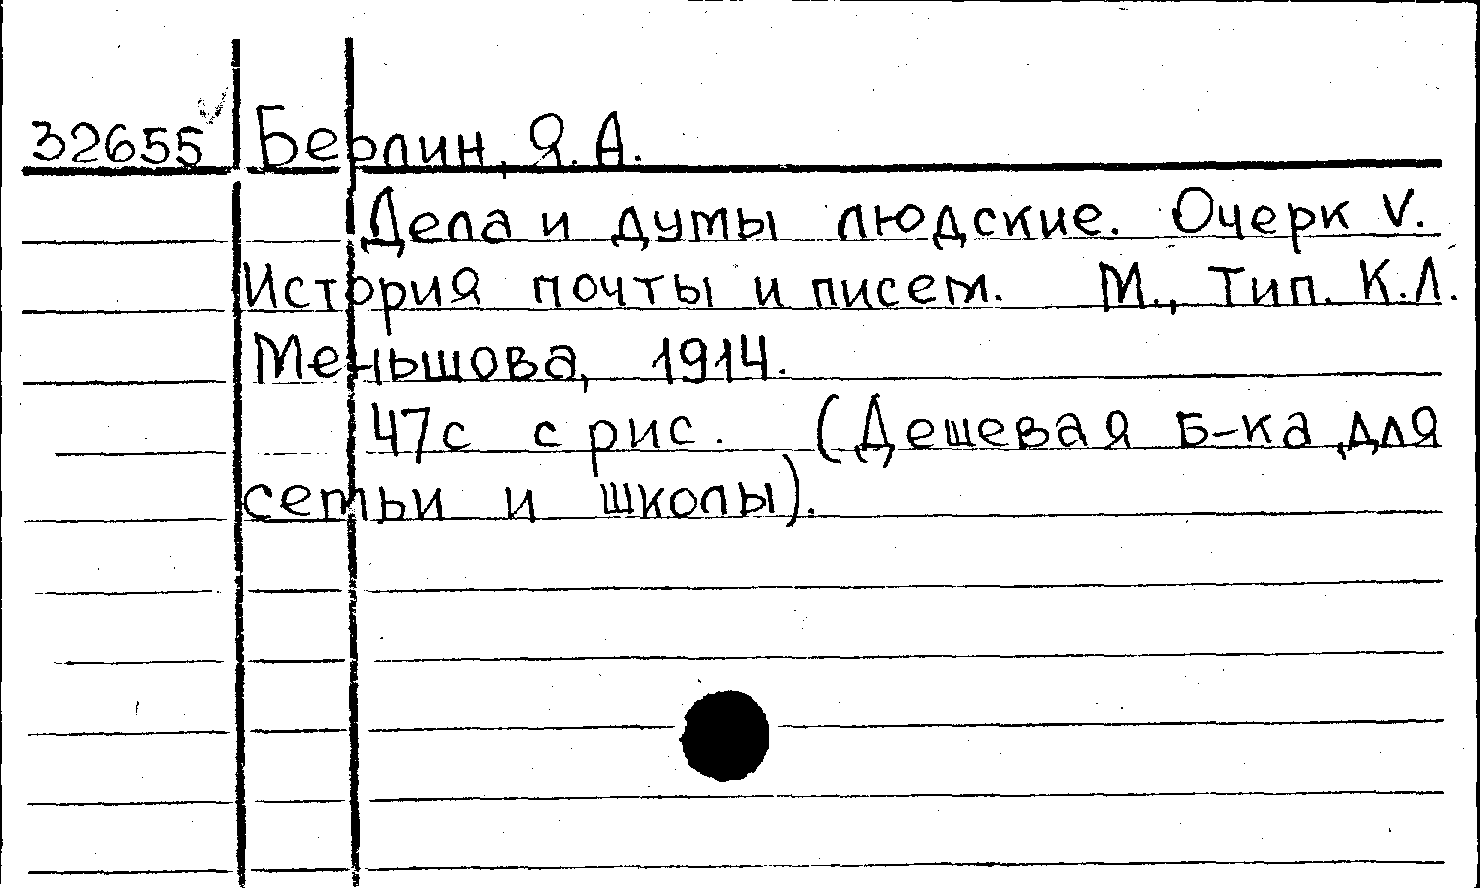 32655 Берлин, Я. А.
Дела и думы людские. Очерк V.
История почты и писем. М., Тип. К.Л.
Меньшова, 1914.
47с с рис. (Дешевая б-ка для
семьи и школы).